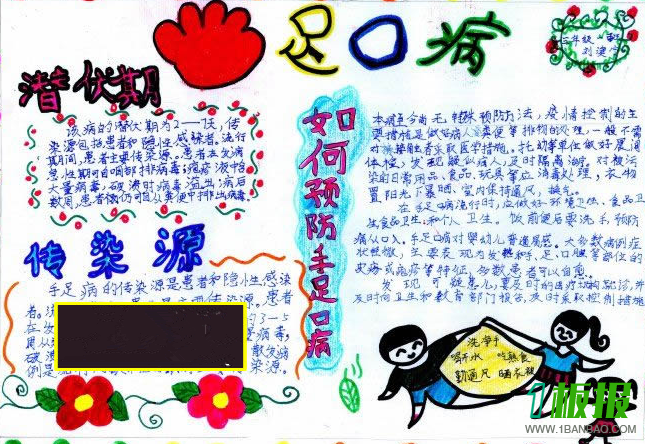 足口病
三年级
潜伏期
该病的潜伏期为2—7天,传
染源包括患者和隐性感染者。流行
期间,患者是主要传染源。患者在发病
急性期可自咽部排病毒;疱疹液中含
大量病毒,破溃时病毒溢出;病后
数周,患者仍可自从粪便中排出病毒。
传染源
手足病的传染源是患者和隐性感染
者。
患者
3—5
病毒,
周从
破溃
散发病
例是
染源。
如何预防手足口病
本病至今尚无特殊预防方法,疫情控制的主
要措施是做好病人粪便等排物的处理,一般不需
对接触者采取医学措施。托幼等单位做好晨间
体检,发现疑似病人,及时隔离治疗。对被污
染的日常用品、食品、玩具等应消毒处理,衣物
置阳光下暴晒,室内保持通风,换气。
在手足口病流行时,应做好环境卫生、食品卫
生食品卫生和个人卫生。饭前便后要洗手,预防
病从口入。手足口病对婴幼儿普遍易感。大多数病例症
状轻微,主要表现为发热和手、足、口腔等部位的
皮疹或疱疹等特征,多数患者可以自愈。
发现可疑患儿,要及时到医疗机构就诊,并
及时向卫生和教育部门报告,及时采取控制措施
洗净手
喝开水 吃熟食
勤通风 晒衣被
1板报
WWW.1BANBAO.COM